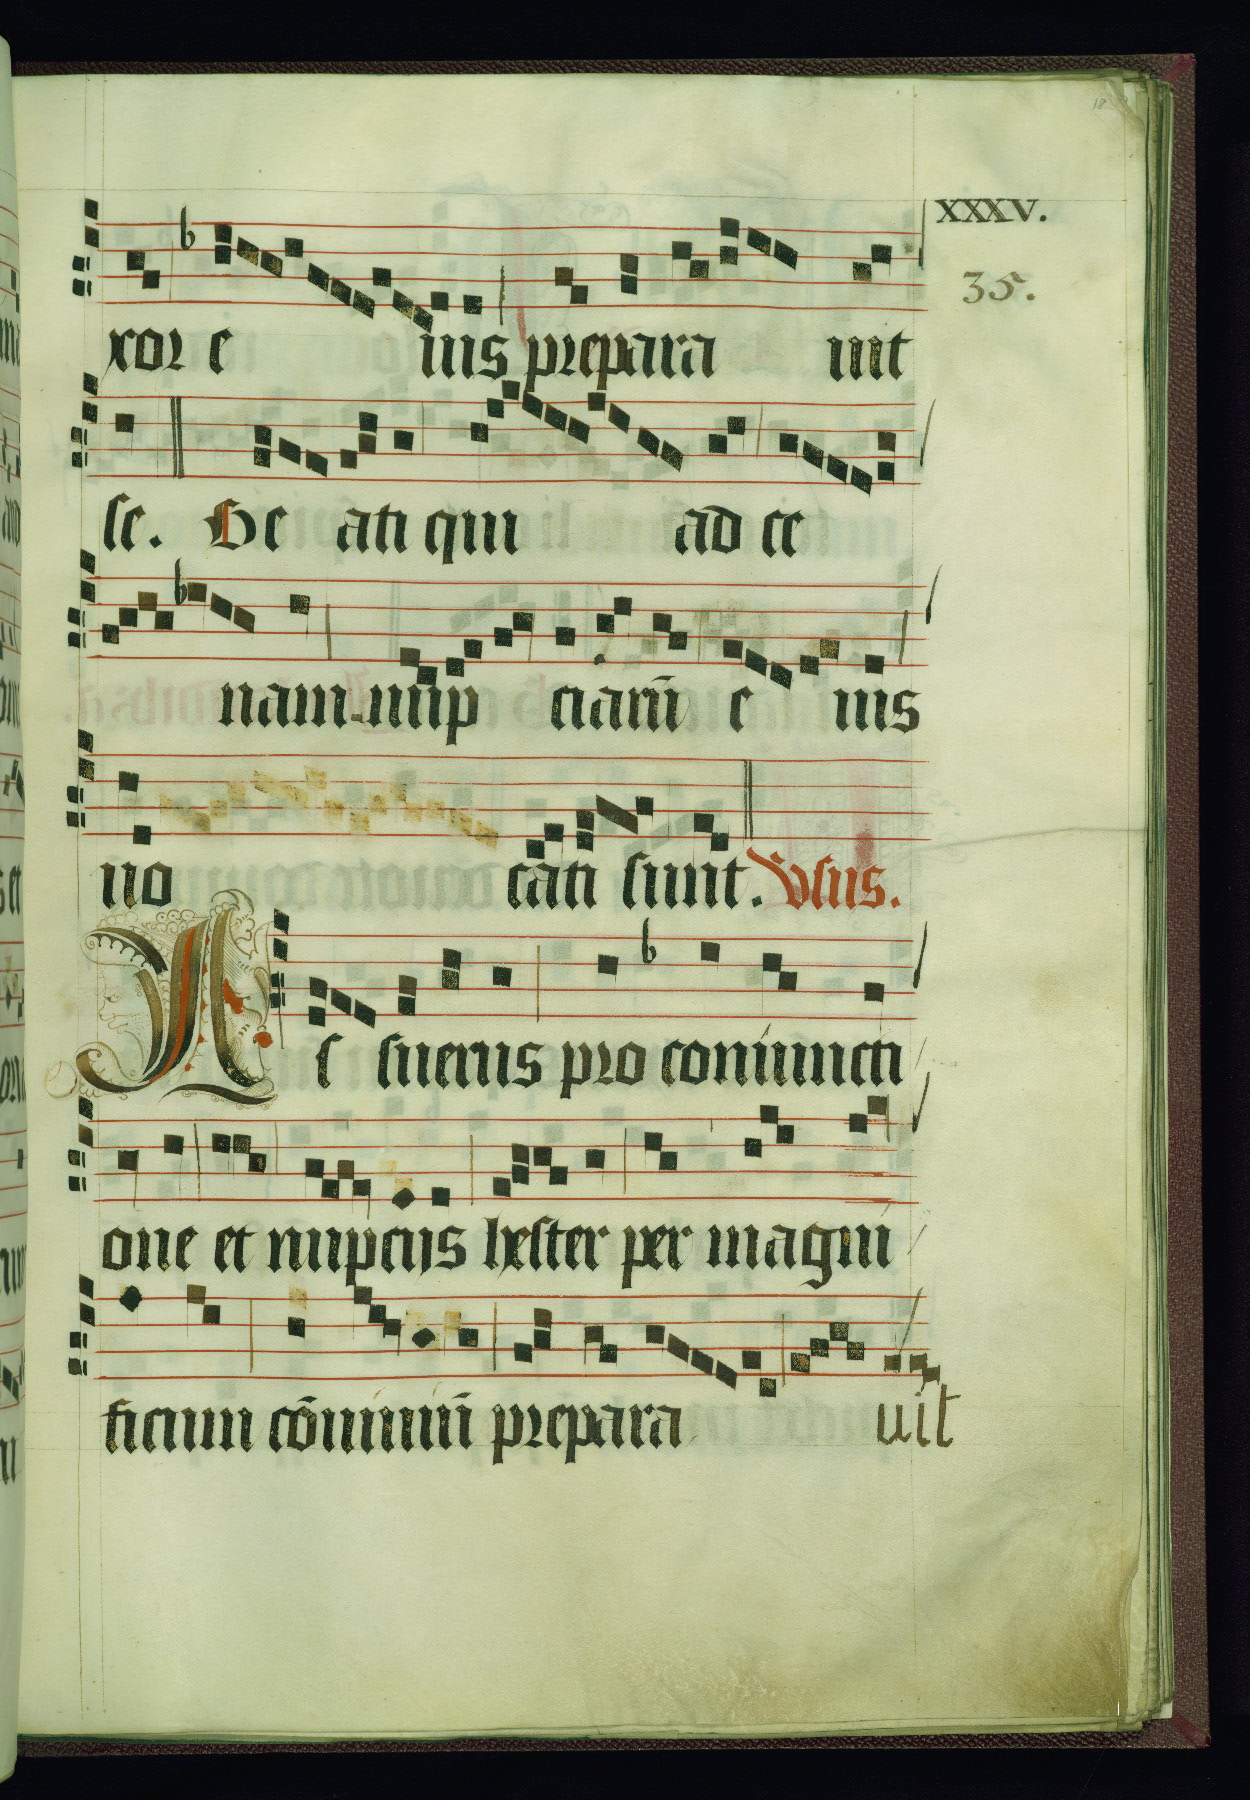 XXXV.
35.
xor e ius prepara uit
se. Be ati qui ad ce
nam nup ciarū e ius
uo cati sunt. Vsus.
As suerus pro coniuncti
one et nupcijs hester per magni
ficum cōuiuiū prepara uit